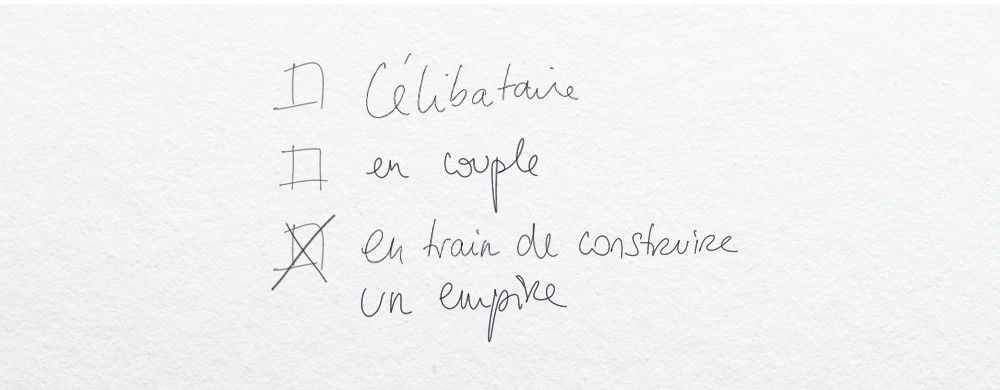 Célibataire
en couple
en train de construire
un empire